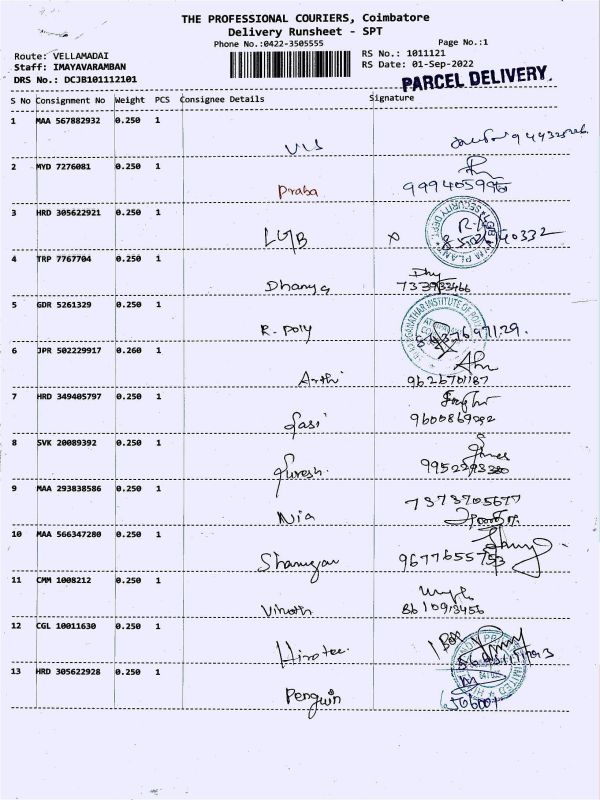 THE PROFESSIONAL COURIERS, Coimbatore
Delivery Runsheet - SPT
Phone No.:0422-3505555 Page No.:1
Route: VELLAMADAI RS No.: 1011121
Staff: IMAYAVARAMBAN RS Date: 01-Sep-2022
DRS No.: DCJB101112101
PARCEL DELIVERY.
S No Consignment No Weight PCS Consignee Details Signature
1 MAA 567882932 0.250 1
2 MYD 7276081 0.250 1
Praba 9994059996
3 HRD 305622921 0.250 1
LGB X
4 TRP 7767704 0.250 1
Dhanya 7339933466
5 GDR 5261329 0.250 1
R. Poly
6 JPR 502229917 0.260 1
Arthi 9626701187
7 HRD 349405797 0.250 1
Sasi 9600869292
8 SVK 20089392 0.250 1
Suresh. 9952293380
9 MAA 293838586 0.250 1
7373705677
Nia
10 MAA 566347280 0.250 1
9677655753
11 CMM 1008212 0.250 1
Vinoth 8610913456
12 CGL 10011630 0.250 1
13 HRD 305622928 0.250 1
Penguin